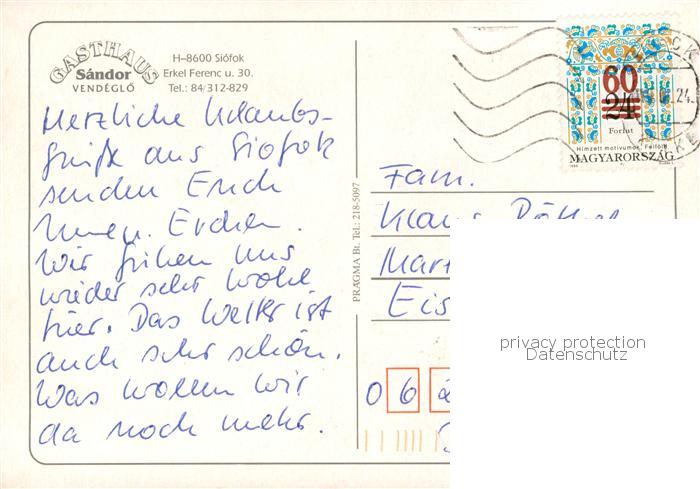 GASTHAUS
Sándor
VENDÉGLŐ
H-8600 Siófok
Erkel Ferenc u. 30.
Tel.: 84/312-829
Herzliche Urlaubs-
grüße aus Siofok
senden Erich
Wir fühlen uns
wieder sehr wohl
hier. Das Wetter ist
auch sehr schön.
Was wollen wir
da noch mehr.
PRAGMA Bt. Tel.: 218-5097
60
24
Forint
Hímzett motívumok, Felföld
MAGYARORSZÁG
Fam.
Klaus
Eis
0 6 2
privacy protection
Datenschutz